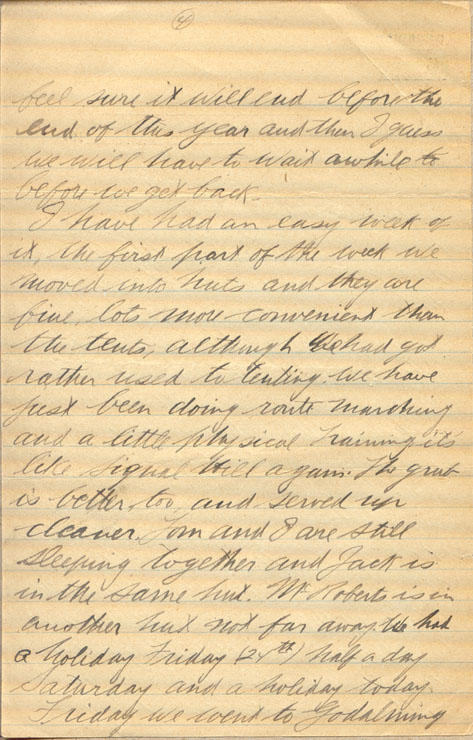 4
feel sure it will end before the
end of this year and then I guess
we will have to wait awhile to
before we get back.
I have had an easy week of
it, the first part of the week we
moved into huts and they are
fine, lots more convenient than
the tents, although we had got
rather used to tenting. We have
just been doing route marching
and a little physical training it's
like Signal Hill again. The grub
is better, too, and served up
cleaner. Tom and I are still
sleeping together and Jack is
in the same hut. Mr Roberts is in
another hut not far away. We had
a holiday Friday (24th) half a day
Saturday and a holiday today.
Friday we went to Godalming